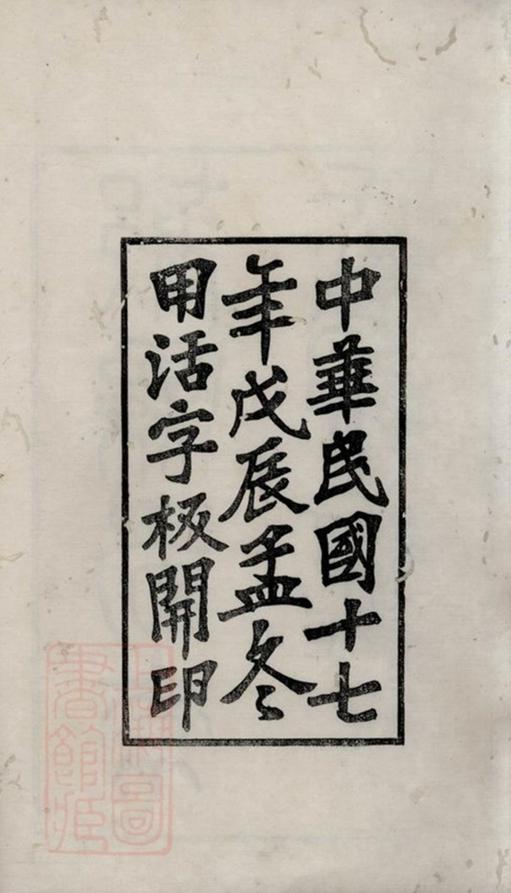 中華民國十七
年戊辰孟冬
用活字板開印